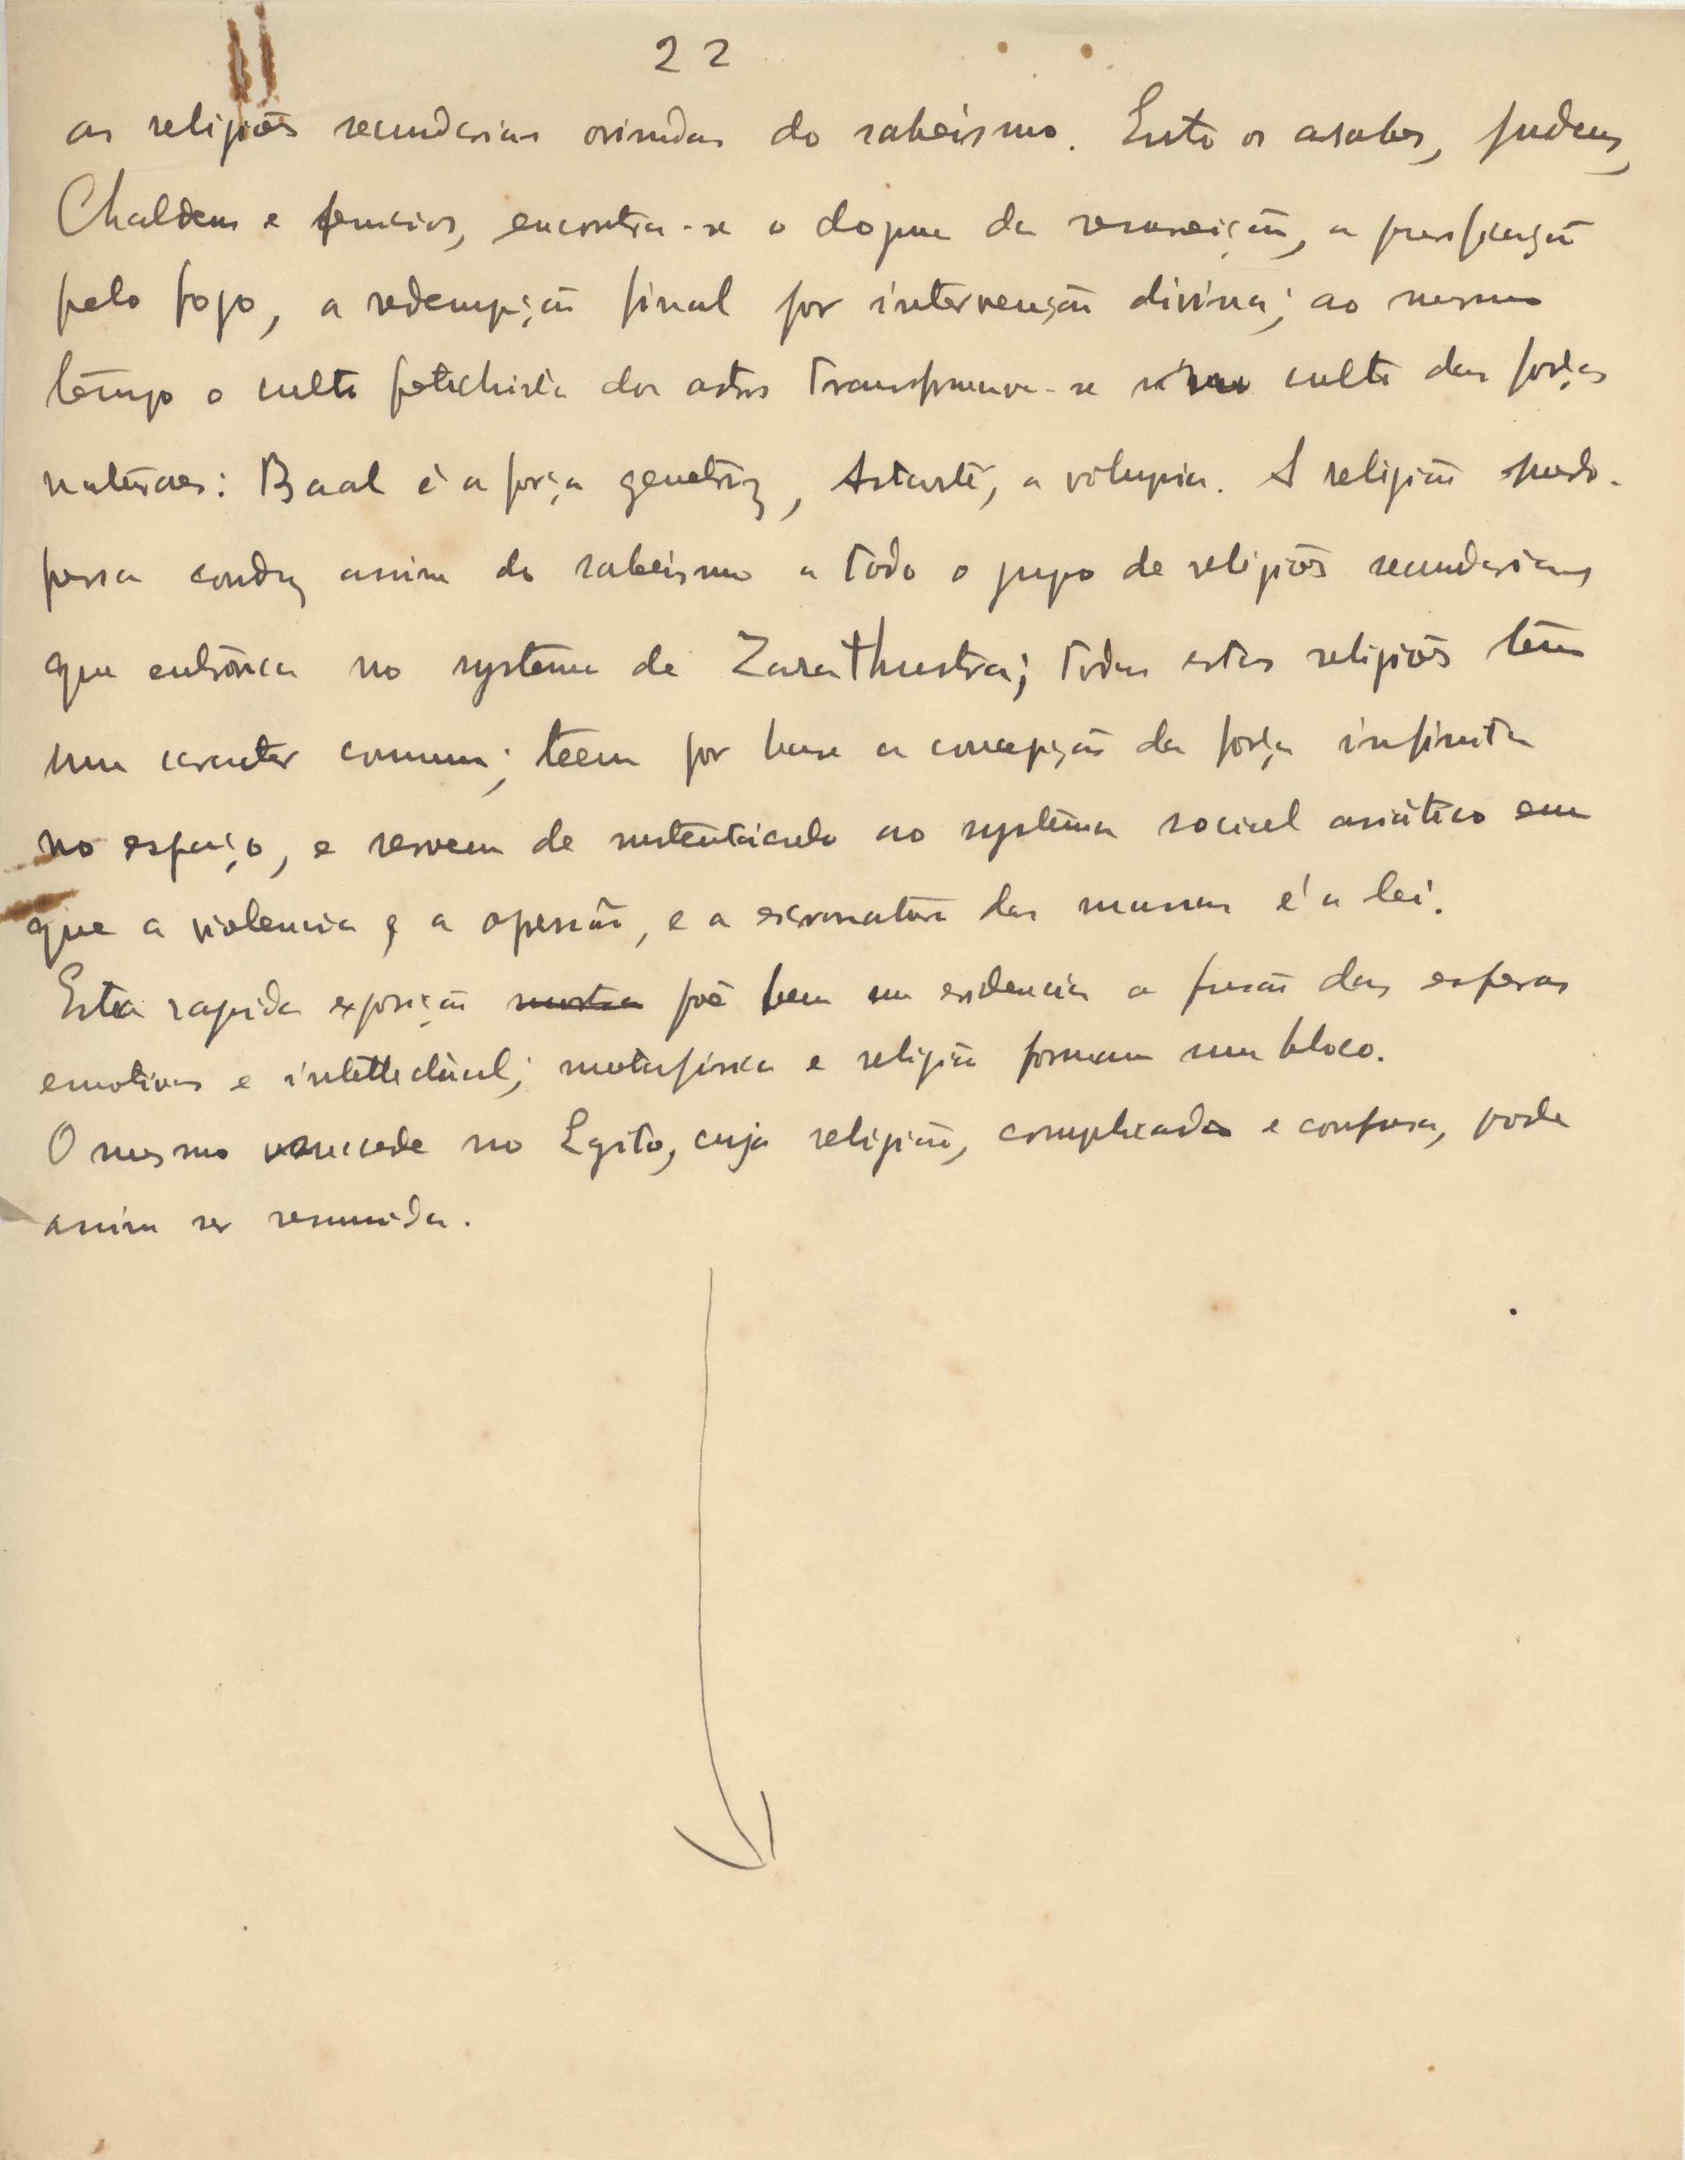 22
as religiões secundarias oriundas do sabeismo. Entre os arabes, judeus,
Chaldeus e fenicios, encontra-se o dogma da resurreição, a purificação
pelo fogo, a redempção final por intervenção divina; ao mesmo
tempo o culto fetichista dos astros transforma-se culto das forças
naturaes: Baal é a força genetriz, Astarté, a volupia. A religião medo-
persa conduz assim do sabeismo a todo o grupo de religiões secundarias
que entronca no systema de Zarathustra; todas estas religiões têm
um caracter commum; teem por base a concepção da força infinita
no espaço, e servem de sustentáculo ao systema social asiático em
que a violencia e a opressão, e a escravatura das massas é a lei.
Esta rapida exposição mostra põe bem em evidencia a fusão das esferas
emotivas e intellectual; metafisica e religião formam um bloco.
O mesmo succede no Egito, cuja religião, complicada e confusa, pode
assim ser resumida.